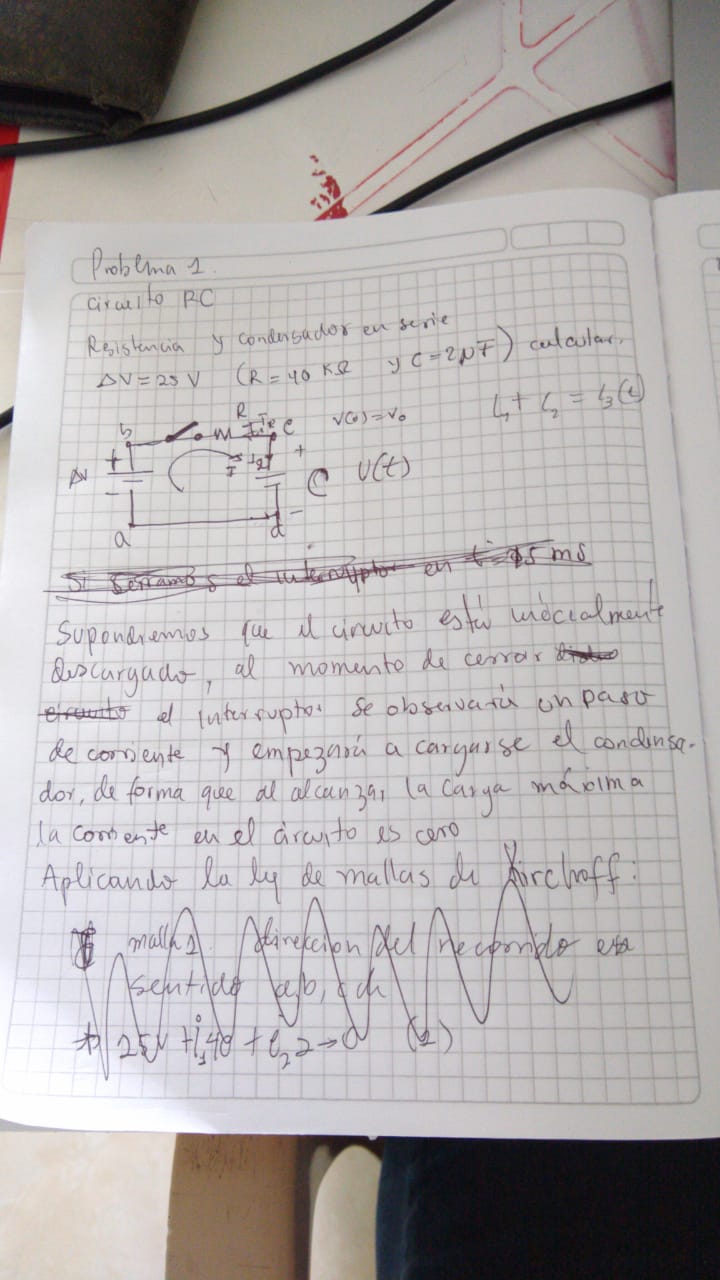 Problema 1.
circuito RC
Resistencia y condensador en serie
ΔV = 25 V (R = 40 KΩ y C = 2µF) calcular.
R
b
c
V(0) = V₀
ΔV
+
-
+
C V(t)
-
a
d
en t = 15 ms
Supondremos que el circuito está inicialmente
descargado, al momento de cerrar
circuito el interruptor se observará un paso
de corriente y empezará a cargarse el condensa-
dor, de forma que al alcanzar la carga máxima
la corriente en el circuito es cero
Aplicando la ley de mallas de Kirchoff:
malla 1 direkcion del recorrido
sentido
25V + i₁40 + i₂2 → 0